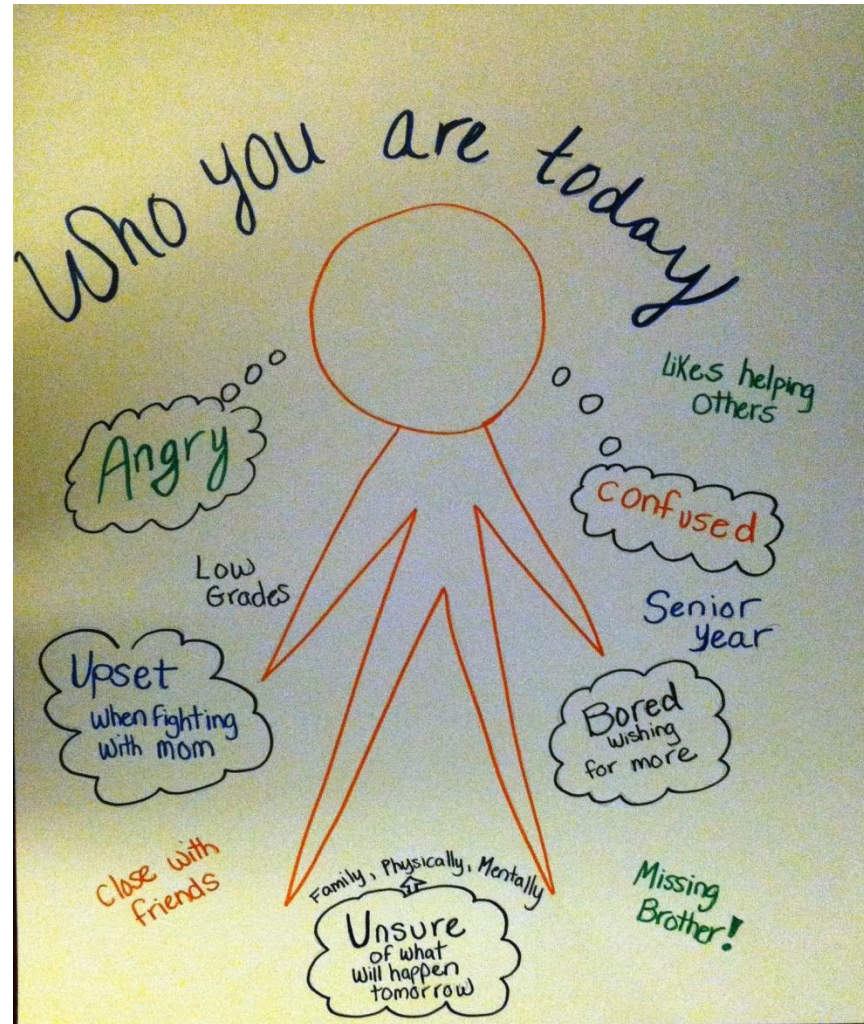 Who you are today
Likes helping
others
Angry
confused
Low
Grades
Senior
year
Upset
when fighting
with mom
Bored
wishing
for more
Close with
friends
Family, Physically, Mentally
Missing
Brother!
Unsure
of what
will happen
tomorrow